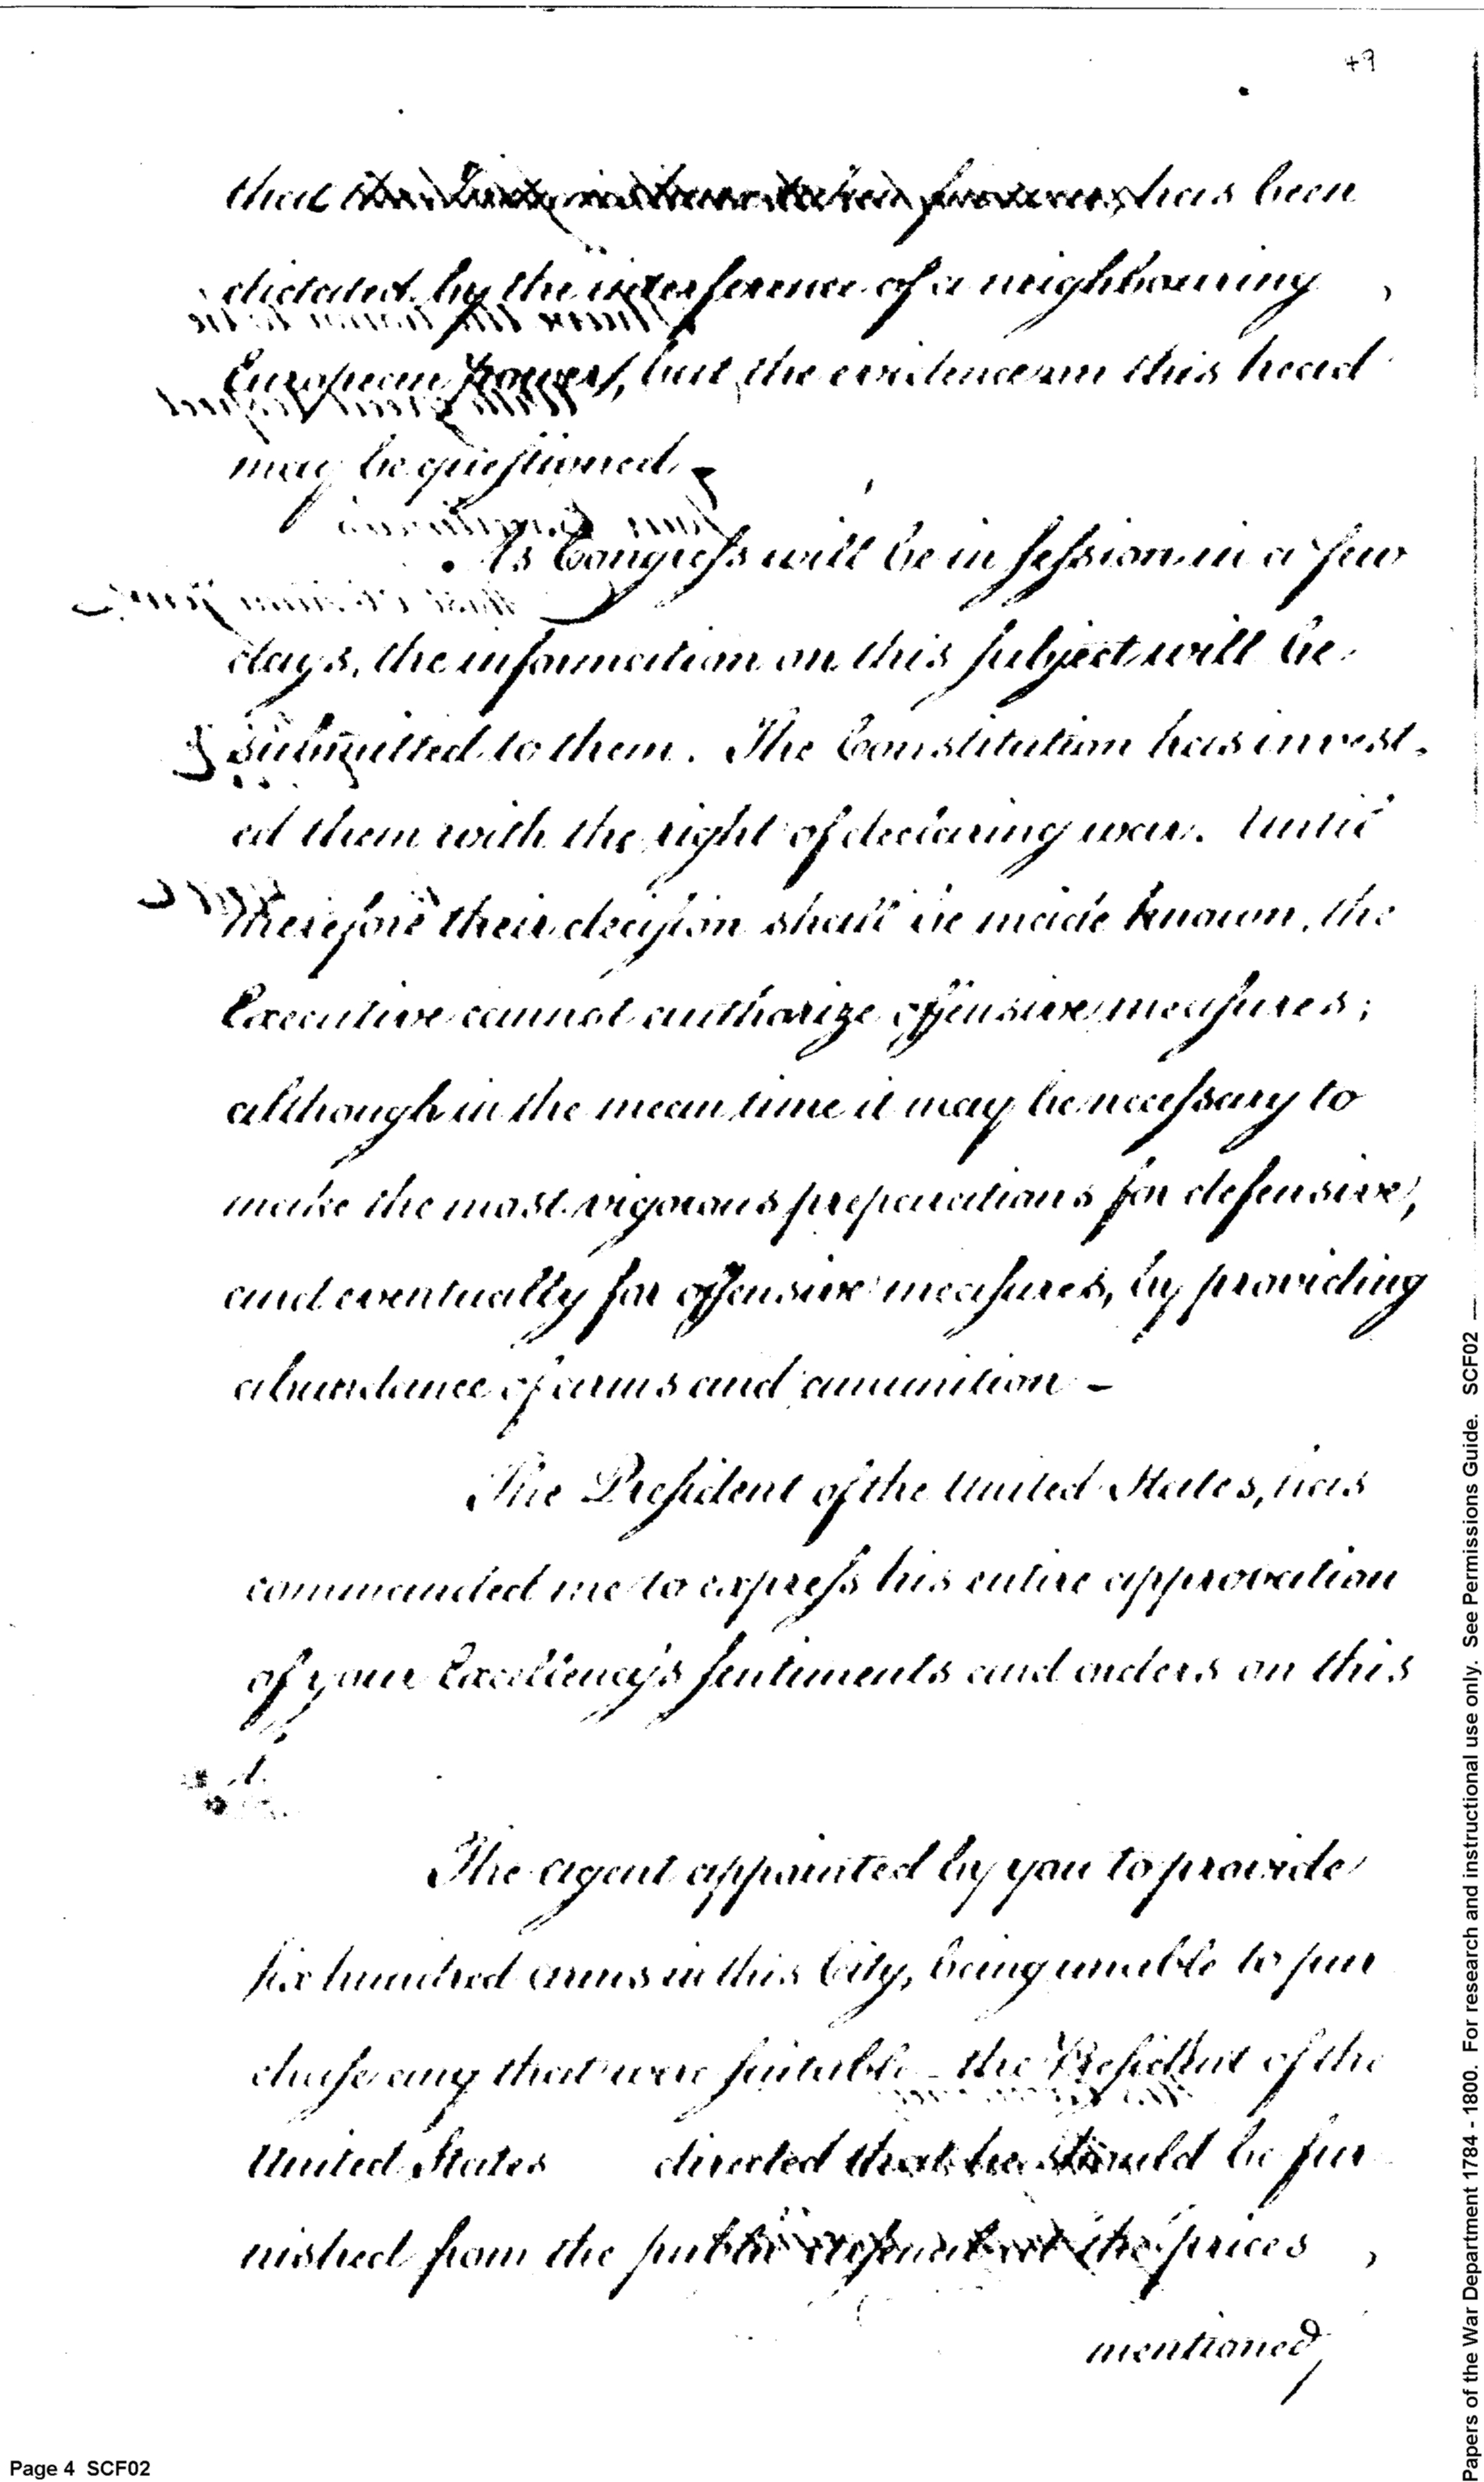 49
that has been
dictated by the interference of a neighbouring
European power, but the evidence on this head
may be questioned.
As Congress will be in session in a few
days, the information on this subject will be
submitted to them. The Constitution has invest-
ed them with the right of declaring war. Until
therefore their decision shall be made known, the
Executive cannot authorize offensive measures;
although in the mean time it may be necessary to
make the most vigorous preparations for defensive,
and eventually for offensive measures, by providing
abundance of arms and amunition -
The President of the United States, has
commanded me to express his entire approbation
of your Excellency's sentiments and orders on this
The agent appointed by you to provide
six hundred arms in this City, being unable to pur
chase any that were suitable - the President of the
United States directed that he should be fur
nished from the public at the prices
mentioned
Page 4 SCF02
Papers of the War Department 1784 - 1800. For research and instructional use only. See Permissions Guide. SCF02